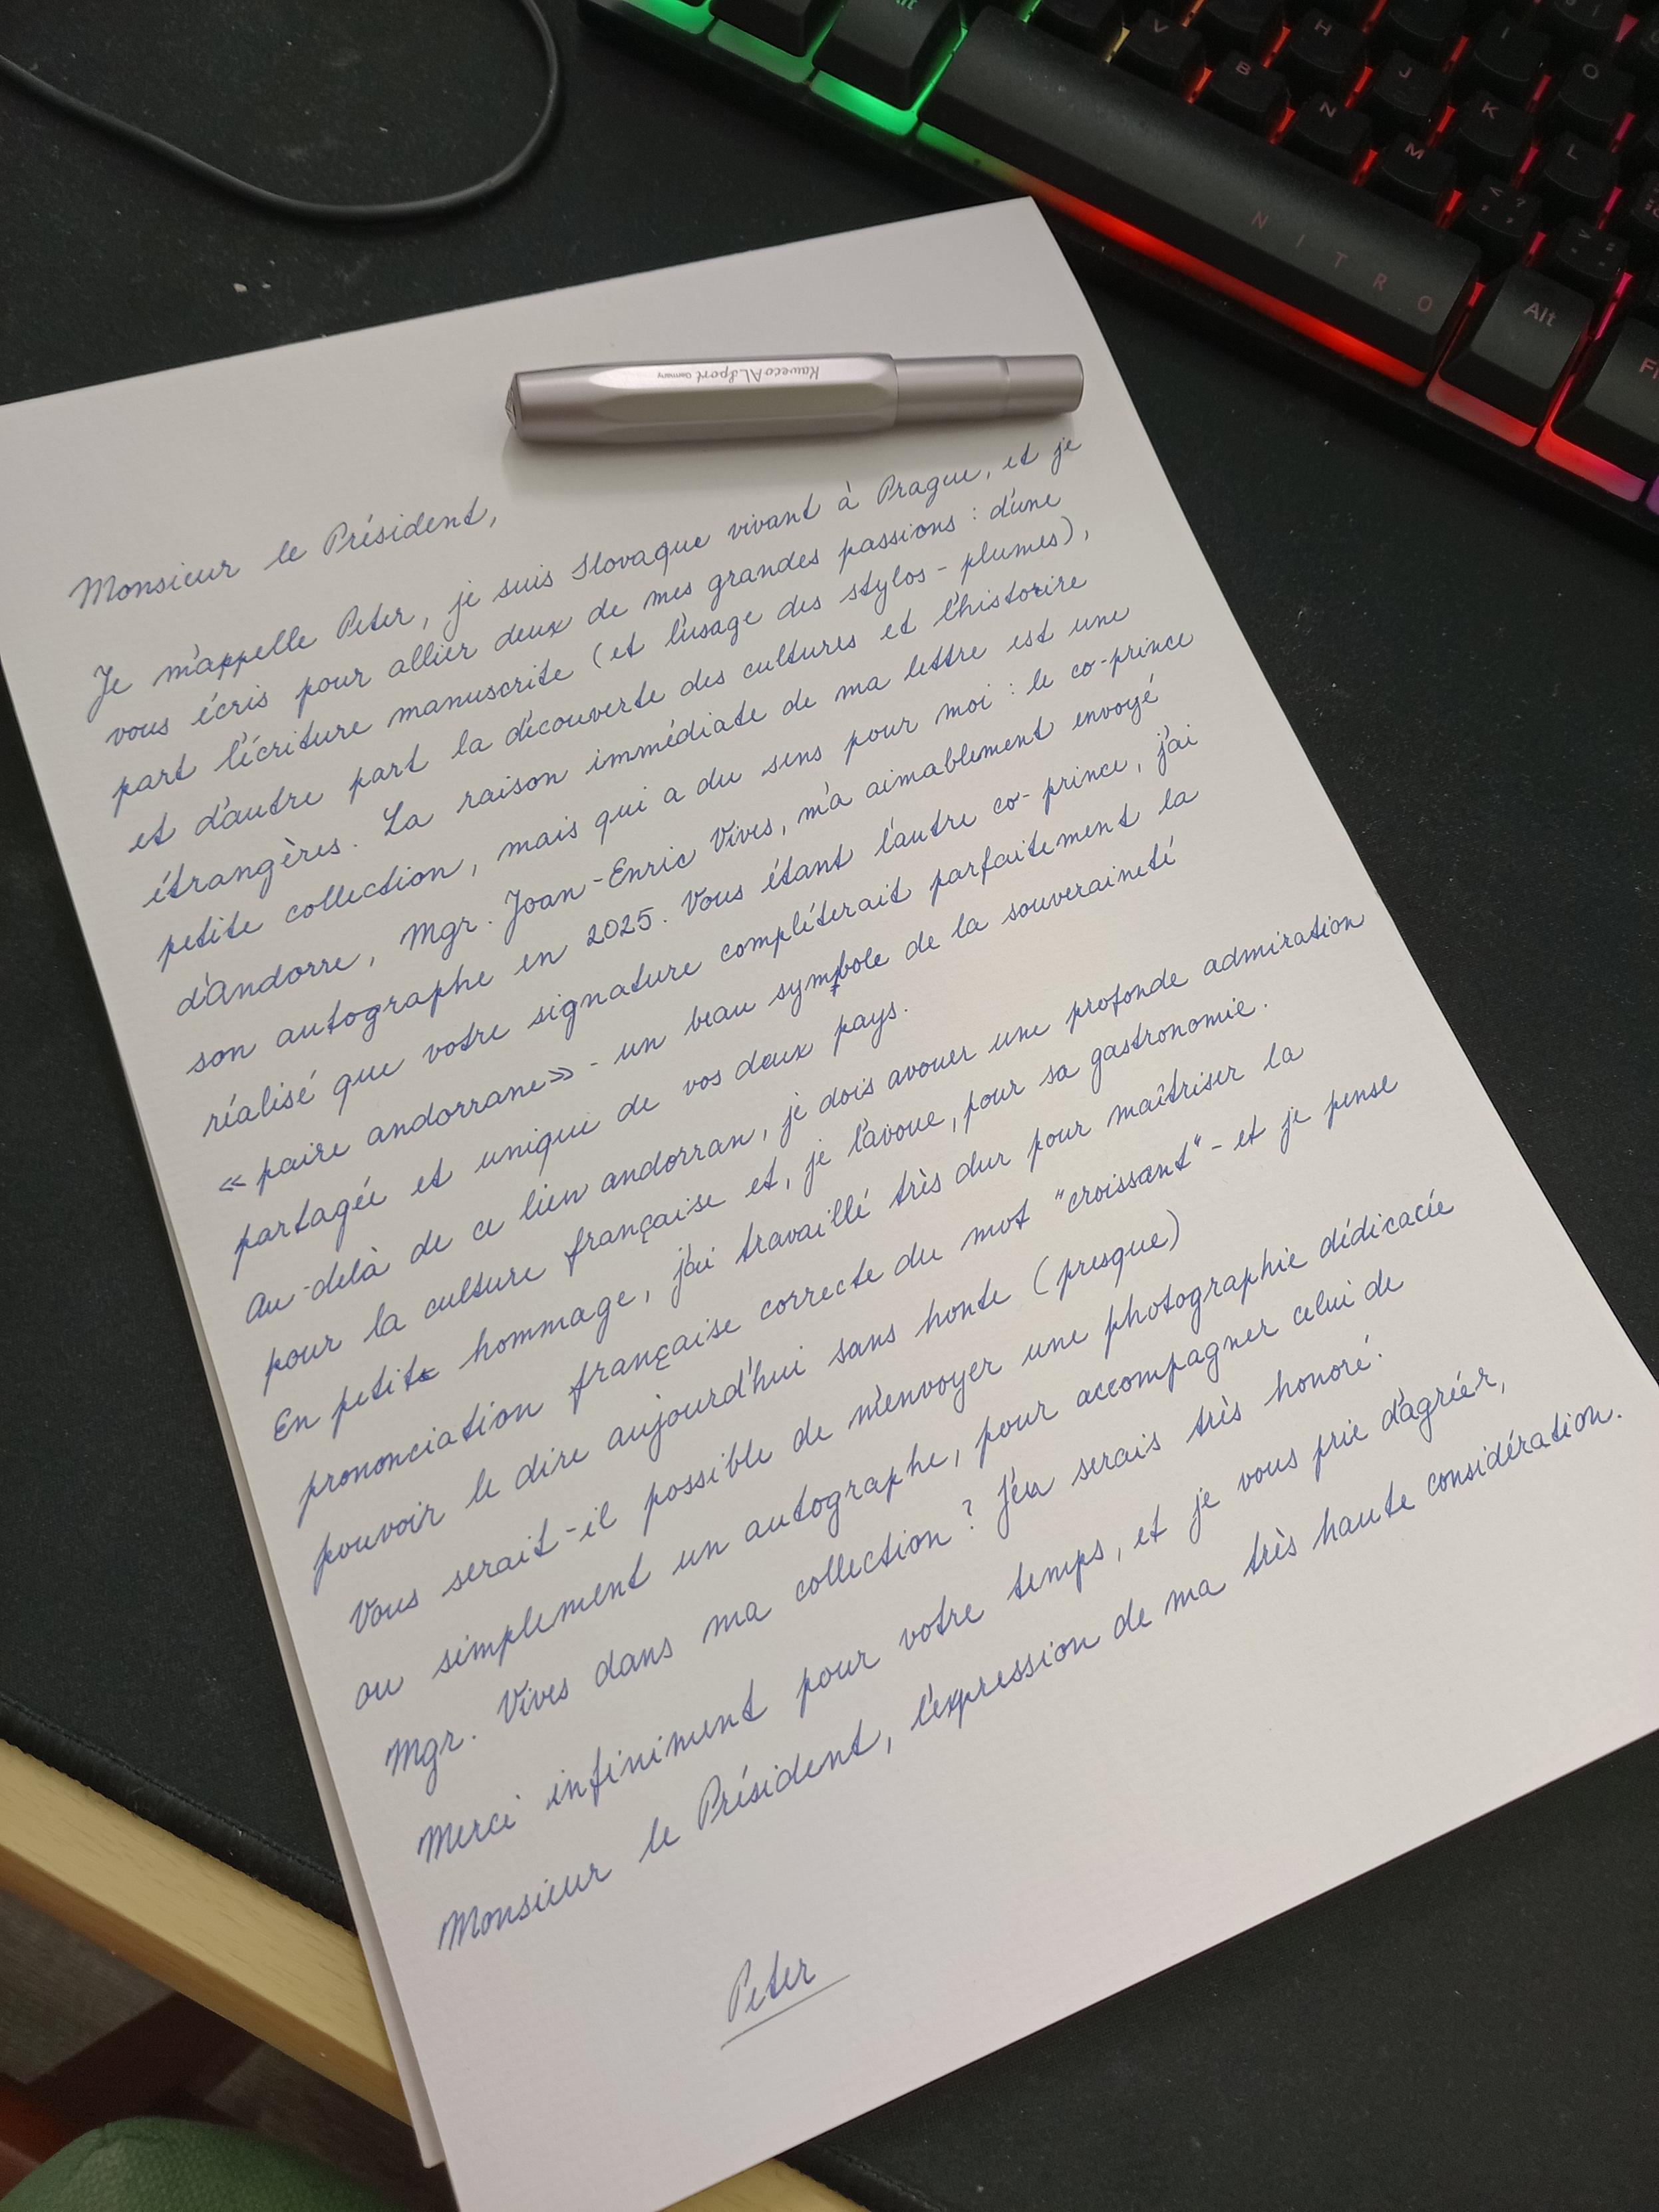 Alt
V
B
H
N
J
M
I
K
O
L
< ?
,
> :
.
NITRO
Alt
Kaweco AL Sport Germany
Monsieur le Président,
Je m'appelle Peter, je suis Slovaque vivant à Prague, et je
vous écris pour allier deux de mes grandes passions : d'une
part l'écriture manuscrite (et l'usage des stylos-plumes),
et d'autre part la découverte des cultures et l'histoire
étrangères. La raison immédiate de ma lettre est une
petite collection, mais qui a du sens pour moi : le co-prince
d'Andorre, Mgr. Joan-Enric Vives, m'a aimablement envoyé
son autographe en 2025. Vous étant l'autre co-prince, j'ai
réalisé que votre signature compléterait parfaitement la
« paire andorrane» - un beau symbole de la souveraineté
partagée et unique de vos deux pays.
Au-delà de ce lien andorran, je dois avouer une profonde admiration
pour la culture française et, je l'avoue, pour sa gastronomie.
En petite hommage, j'ai travaillé très dur pour maîtriser la
prononciation française correcte du mot "croissant" - et je pense
pouvoir le dire aujourd'hui sans honte (presque)
Vous serait-il possible de m'envoyer une photographie dédicacée
ou simplement un autographe, pour accompagner celui de
Mgr. Vives dans ma collection ? J'en serais très honoré.
Merci infiniment pour votre temps, et je vous prie d'agréér,
Monsieur le Président, l'expression de ma très haute considération.
Peter